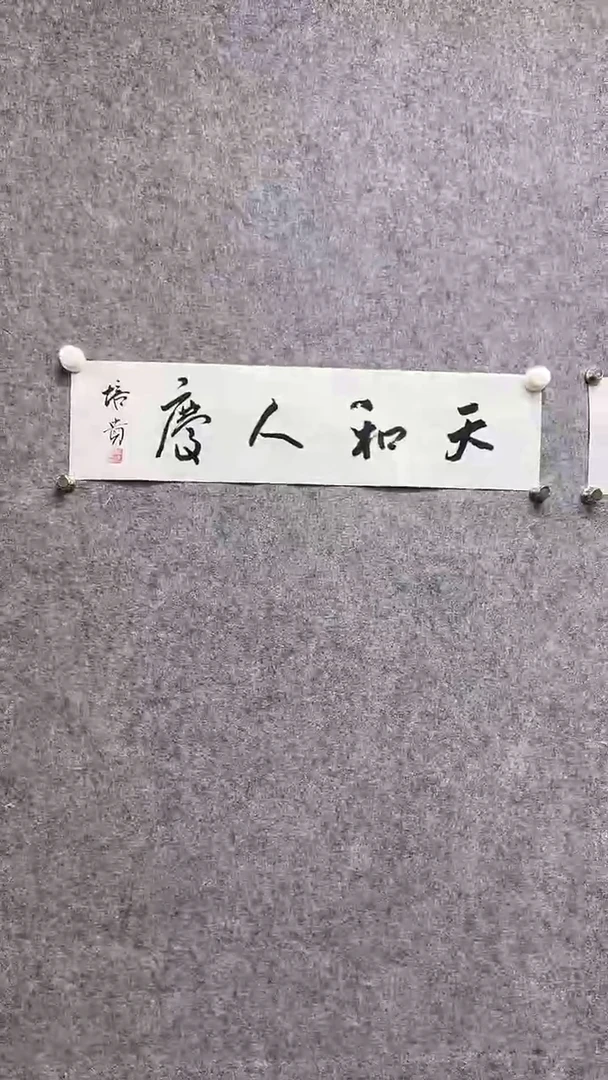 天和人慶
培贵